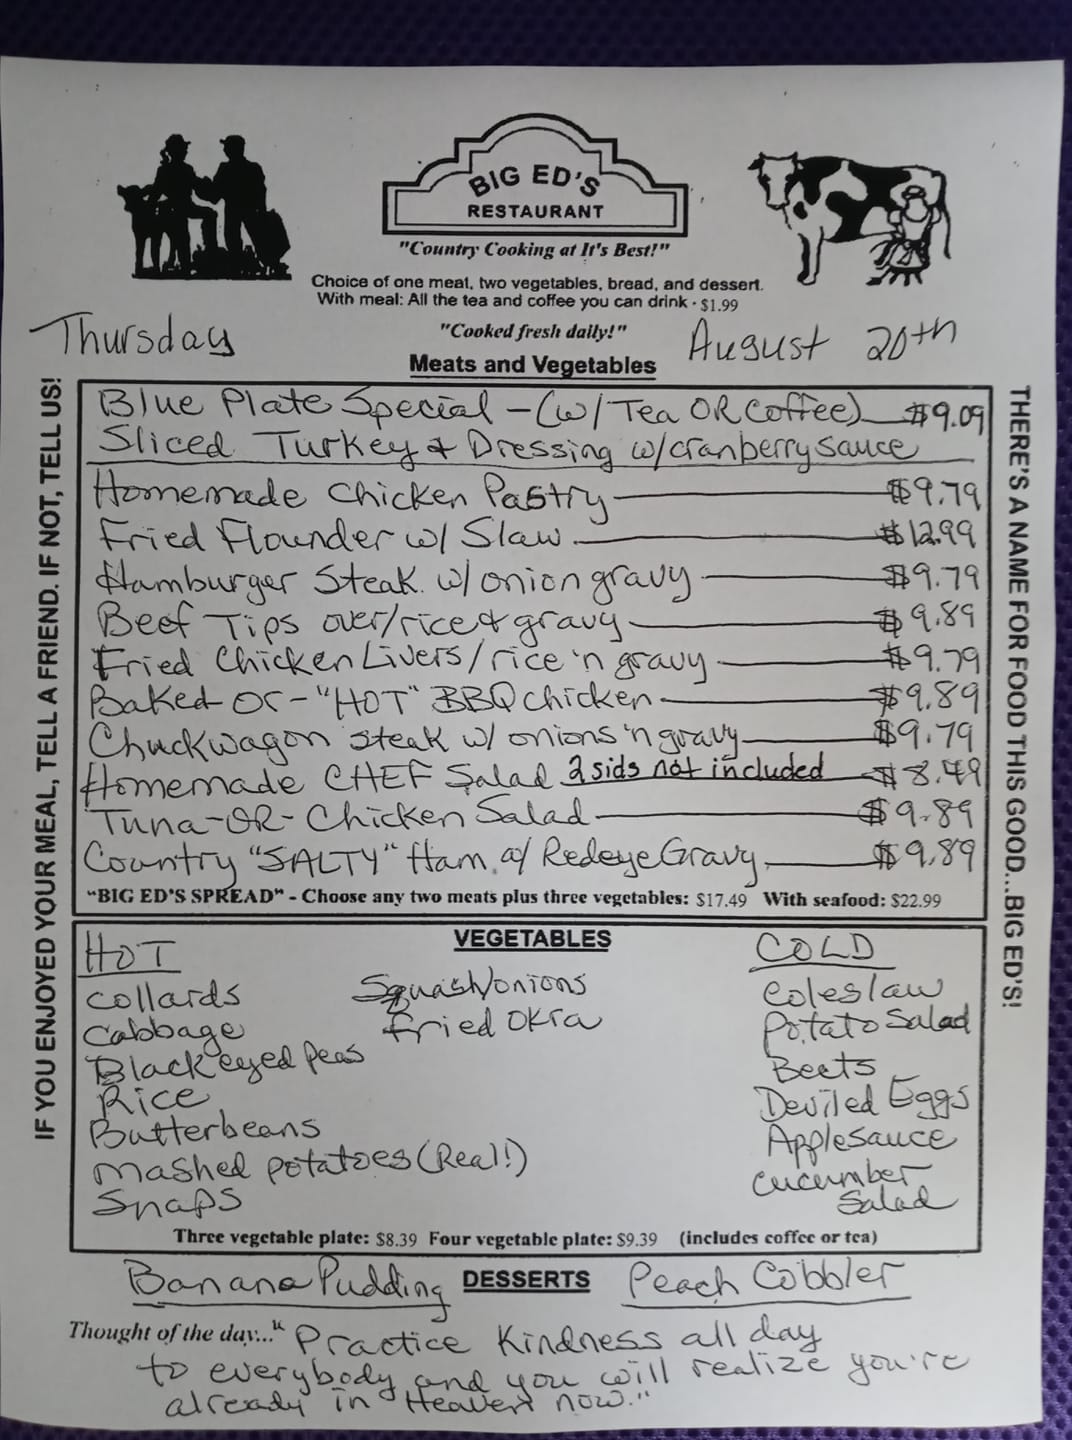 BIG ED'S
RESTAURANT
"Country Cooking at It's Best!"
Choice of one meat, two vegetables, bread, and dessert.
With meal: All the tea and coffee you can drink · $1.99
"Cooked fresh daily!"
Thursday
August 20th
Meats and Vegetables
Blue Plate Special - (w/Tea OR Coffee) $9.09
Sliced Turkey & Dressing w/cranberry sauce
Homemade Chicken Pastry $9.79
Fried Flounder w/ Slaw $12.99
Hamburger Steak w/ onion gravy $9.79
Beef Tips over/rice & gravy $9.89
Fried Chicken Livers/rice 'n gravy $9.79
Baked-or-"HOT" BBQ chicken $9.89
Chuckwagon steak w/ onions 'n gravy $9.79
Homemade CHEF Salad 2 sids not included $8.49
Tuna-OR-Chicken Salad $9.89
Country "SALTY" Ham w/ Redeye Gravy $9.89
"BIG ED'S SPREAD" - Choose any two meats plus three vegetables: $17.49 With seafood: $22.99
VEGETABLES
HOT
Collards
Cabbage
Black eyed peas
Rice
Butterbeans
Mashed potatoes (Real!)
Snaps
Squash/onions
Fried Okra
COLD
Coleslaw
Potato Salad
Beets
Deviled Eggs
Applesauce
Cucumber
Salad
Three vegetable plate: $8.39 Four vegetable plate: $9.39 (includes coffee or tea)
Banana Pudding DESSERTS Peach Cobbler
Thought of the day..." Practice Kindness all day
to everybody and you will realize you're
already in Heaven now."
IF YOU ENJOYED YOUR MEAL, TELL A FRIEND. IF NOT, TELL US!
THERE'S A NAME FOR FOOD THIS GOOD...BIG ED'S!